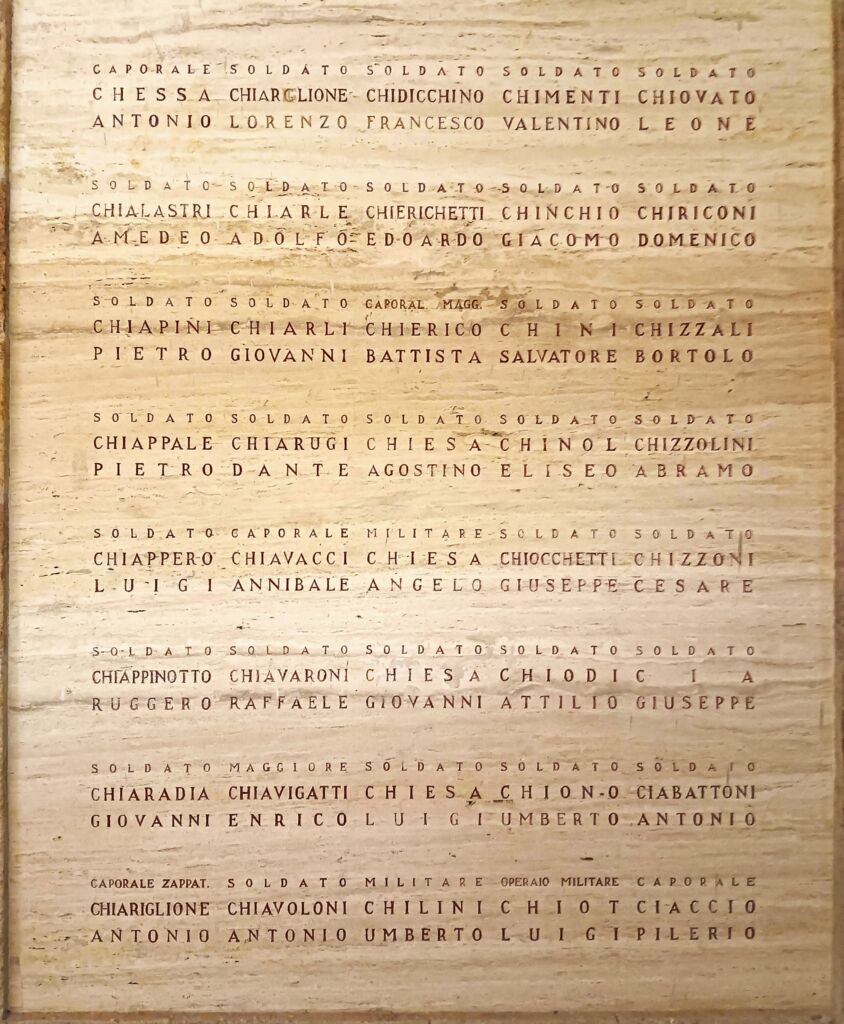 CAPORALE SOLDATO SOLDATO SOLDATO SOLDATO
CHESSA CHIARGLIONE CHIDICCHINO CHIMENTI CHIOVATO
ANTONIO LORENZO FRANCESCO VALENTINO LEONE
SOLDATO SOLDATO SOLDATO SOLDATO SOLDATO
CHIALASTRI CHIARLE CHIERICHETTI CHINCHIO CHIRICONI
AMEDEO ADOLFO EDOARDO GIACOMO DOMENICO
SOLDATO SOLDATO CAPORAL MAGG. SOLDATO SOLDATO
CHIAPINI CHIARLI CHIERICO CHINI CHIZZALI
PIETRO GIOVANNI BATTISTA SALVATORE BORTOLO
SOLDATO SOLDATO SOLDATO SOLDATO SOLDATO
CHIAPPALE CHIARUGI CHIESA CHINOL CHIZZOLINI
PIETRO DANTE AGOSTINO ELISEO ABRAMO
SOLDATO CAPORALE MILITARE SOLDATO SOLDATO
CHIAPPERO CHIAVACCI CHIESA CHIOCCHETTI CHIZZONI
LUIGI ANNIBALE ANGELO GIUSEPPE CESARE
SOLDATO SOLDATO SOLDATO SOLDATO SOLDATO
CHIAPPINOTTO CHIAVARONI CHIESA CHIODI CIA
RUGGERO RAFFAELE GIOVANNI ATTILIO GIUSEPPE
SOLDATO MAGGIORE SOLDATO SOLDATO SOLDATO
CHIARADIA CHIAVIGATTI CHIESA CHIONO CIABATTONI
GIOVANNI ENRICO LUIGI UMBERTO ANTONIO
CAPORALE ZAPPAT. SOLDATO MILITARE OPERAIO MILITARE CAPORALE
CHIARIGLIONE CHIAVOLONI CHILINI CHIOT CIACCIO
ANTONIO ANTONIO UMBERTO LUIGI PILERIO